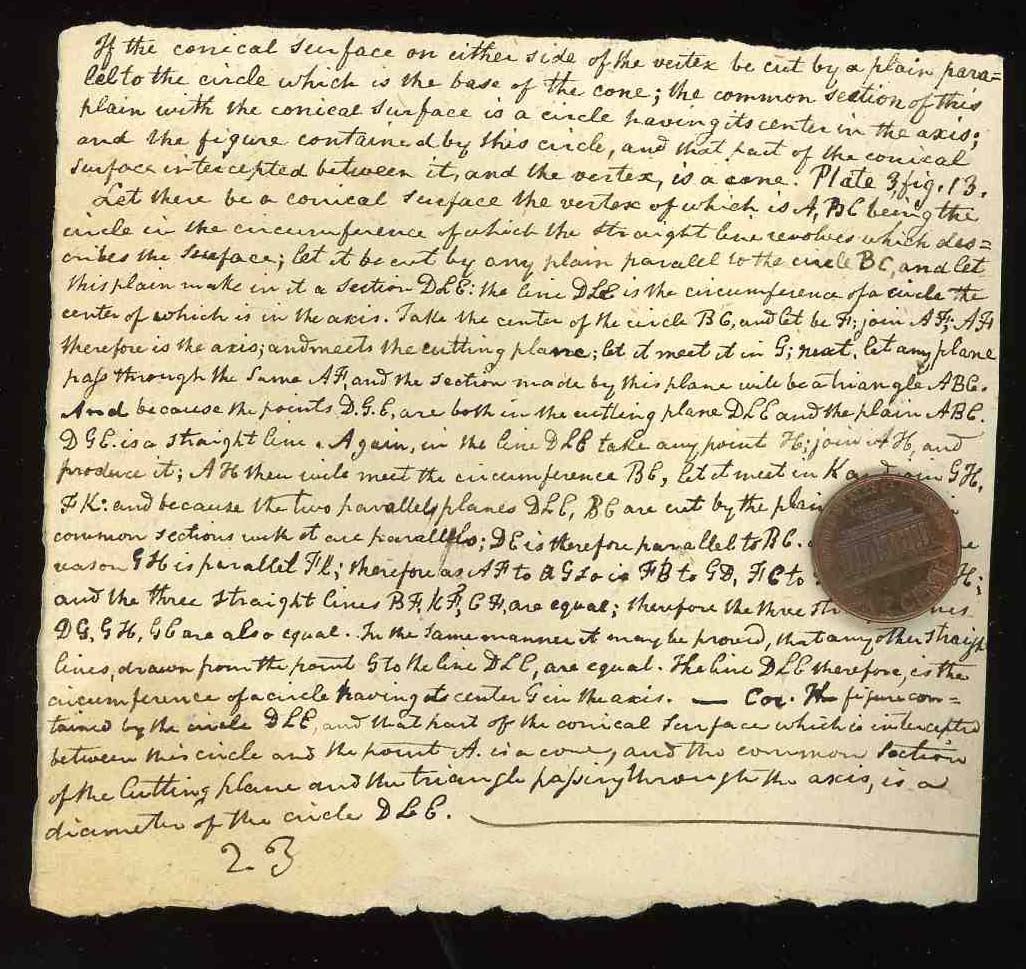 If the conical surface on either side of the vertex be cut by a plain para=
lel to the circle which is the base of the cone; the common section of this
plain with the conical surface is a circle having its center in the axis;
and the figure contained by this circle, and that part of the conical
surface intercepted between it, and the vertex, is a cone. Plate 3, fig. 13.
Let there be a conical surface the vertex of which is A, BC being the
circle in the circumference of which the straight line revolves which des=
cribes the surface; let it be cut by any plain parallel to the circle BC, and let
this plain make in it a section DLE: the line DLE is the circumference of a circle the
center of which is in the axis. Take the center of the circle BC, and let be F; join AF; AF
therefore is the axis; and meets the cutting plane; let it meet it in G; next, let any plane
pass through the same AF, and the section made by this plane will be a triangle ABC.
And because the points D.G.E, are both in the cutting plane DLE and the plain ABC.
DGE. is a straight line. Again, in the line DLE take any point H; join AH, and
produce it; AH then will meet the circumference BC, let it meet in K GH,
FK: and because the two parallel planes DLE, BC are cut by the
common sections with it are parallels; DE is therefore parallel to BC.
reason GH is parallel FK; therefore as AF to AG so is FB to GD, FC to H;
and the three straight lines BF, KF, CF, are equal; therefore the three
DG, GH, GE are also equal. In the same manner it may be proved, that any other straigh
lines, drawn from the point G to the line DLE, are equal. The line DLE therefore, is the
circumference of a circle having its center G in the axis. — Cor. The figure con=
tained by the circle DLE, and that part of the conical surface which is intercepted
between this circle and the point A. is a cone, and the common section
of the Cutting plane and the triangle passing through the axis, is a
diameter of the circle DLE.
23